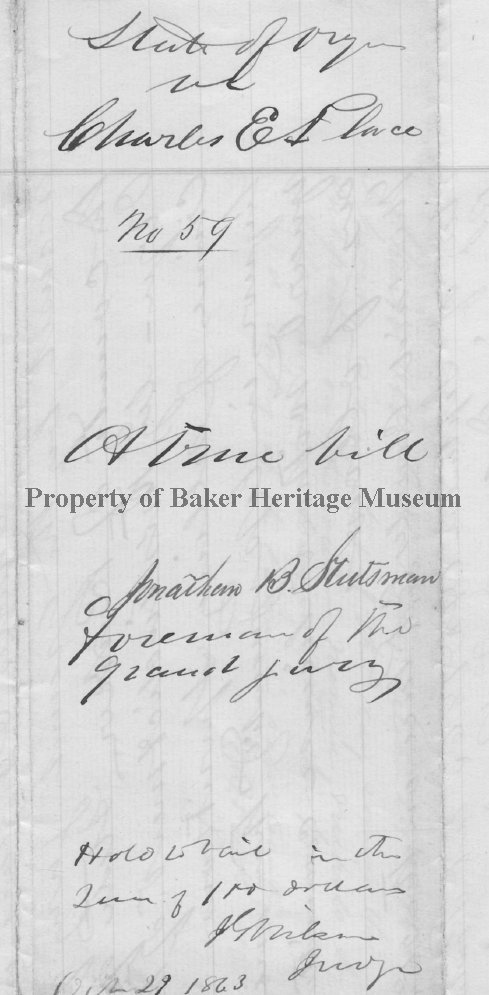 State of Oregon
vs
Charles E. Place
No 59
A True bill
Property of Baker Heritage Museum
Jonathan B. Stutsman
foreman of the
grand jury
Hold to bail in the
Sum of 100 dollars
J G Wilson
Judge
29 1863